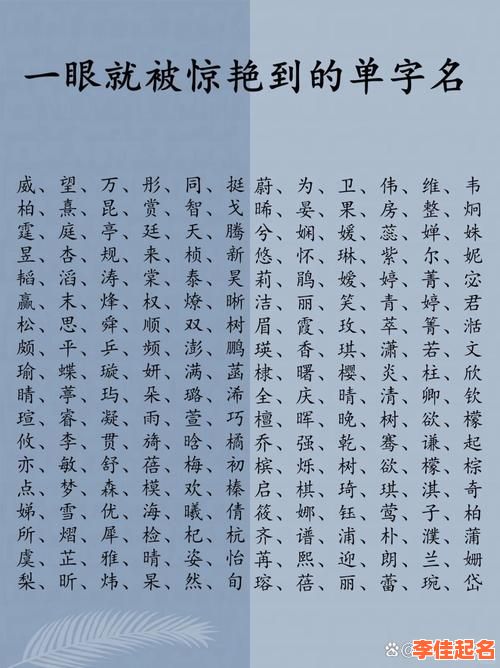 一眼就被惊艳到的单字名
威、望、万、彤、同、挺 蔚、为、卫、伟、维、韦
柏、熹、昆、赏、智、戈 晞、晏、果、房、整、炯
霆、庭、亭、廷、天、腾 兮、娴、媛、蕊、婵、姝
昱、杏、规、来、桢、新 悠、怀、琳、紫、尔、妮
韬、滔、涛、棠、泰、昊 莉、鹃、嫒、婷、菁、宓
赢、末、烽、权、燎、晰 洁、丽、笑、青、婷、君
松、思、舜、顺、双、树 眉、霞、玫、萃、箐、恬
颇、平、乒、频、澎、鹏 瑛、香、琪、潇、若、文
瑜、蝶、璇、妍、满、菡 棣、曙、樱、炎、柱、欣
晴、葶、玙、朵、璐、浠 全、庆、晴、清、卿、钦
瑄、睿、凝、雨、萱、巧 檀、晖、晚、树、欲、檬
攸、李、贯、旖、晗、橘 乔、强、乾、骞、谦、起
亦、敏、舒、蓓、梅、初 槟、烁、树、欲、檬、棕
点、梦、森、模、欢、榛 启、棋、琦、琪、淇、奇
娣、雪、优、海、曦、倩 筱、娜、钰、莺、子、柏
所、熠、犀、检、杞、杭 齐、谱、浦、朴、濮、蒲
虞、芷、雅、晴、姿、怡 苒、熙、迎、朗、兰、姗
梨、昕、炜、杲、然、旬 瑢、蓓、丽、蕾、琬、岱
李佳起名